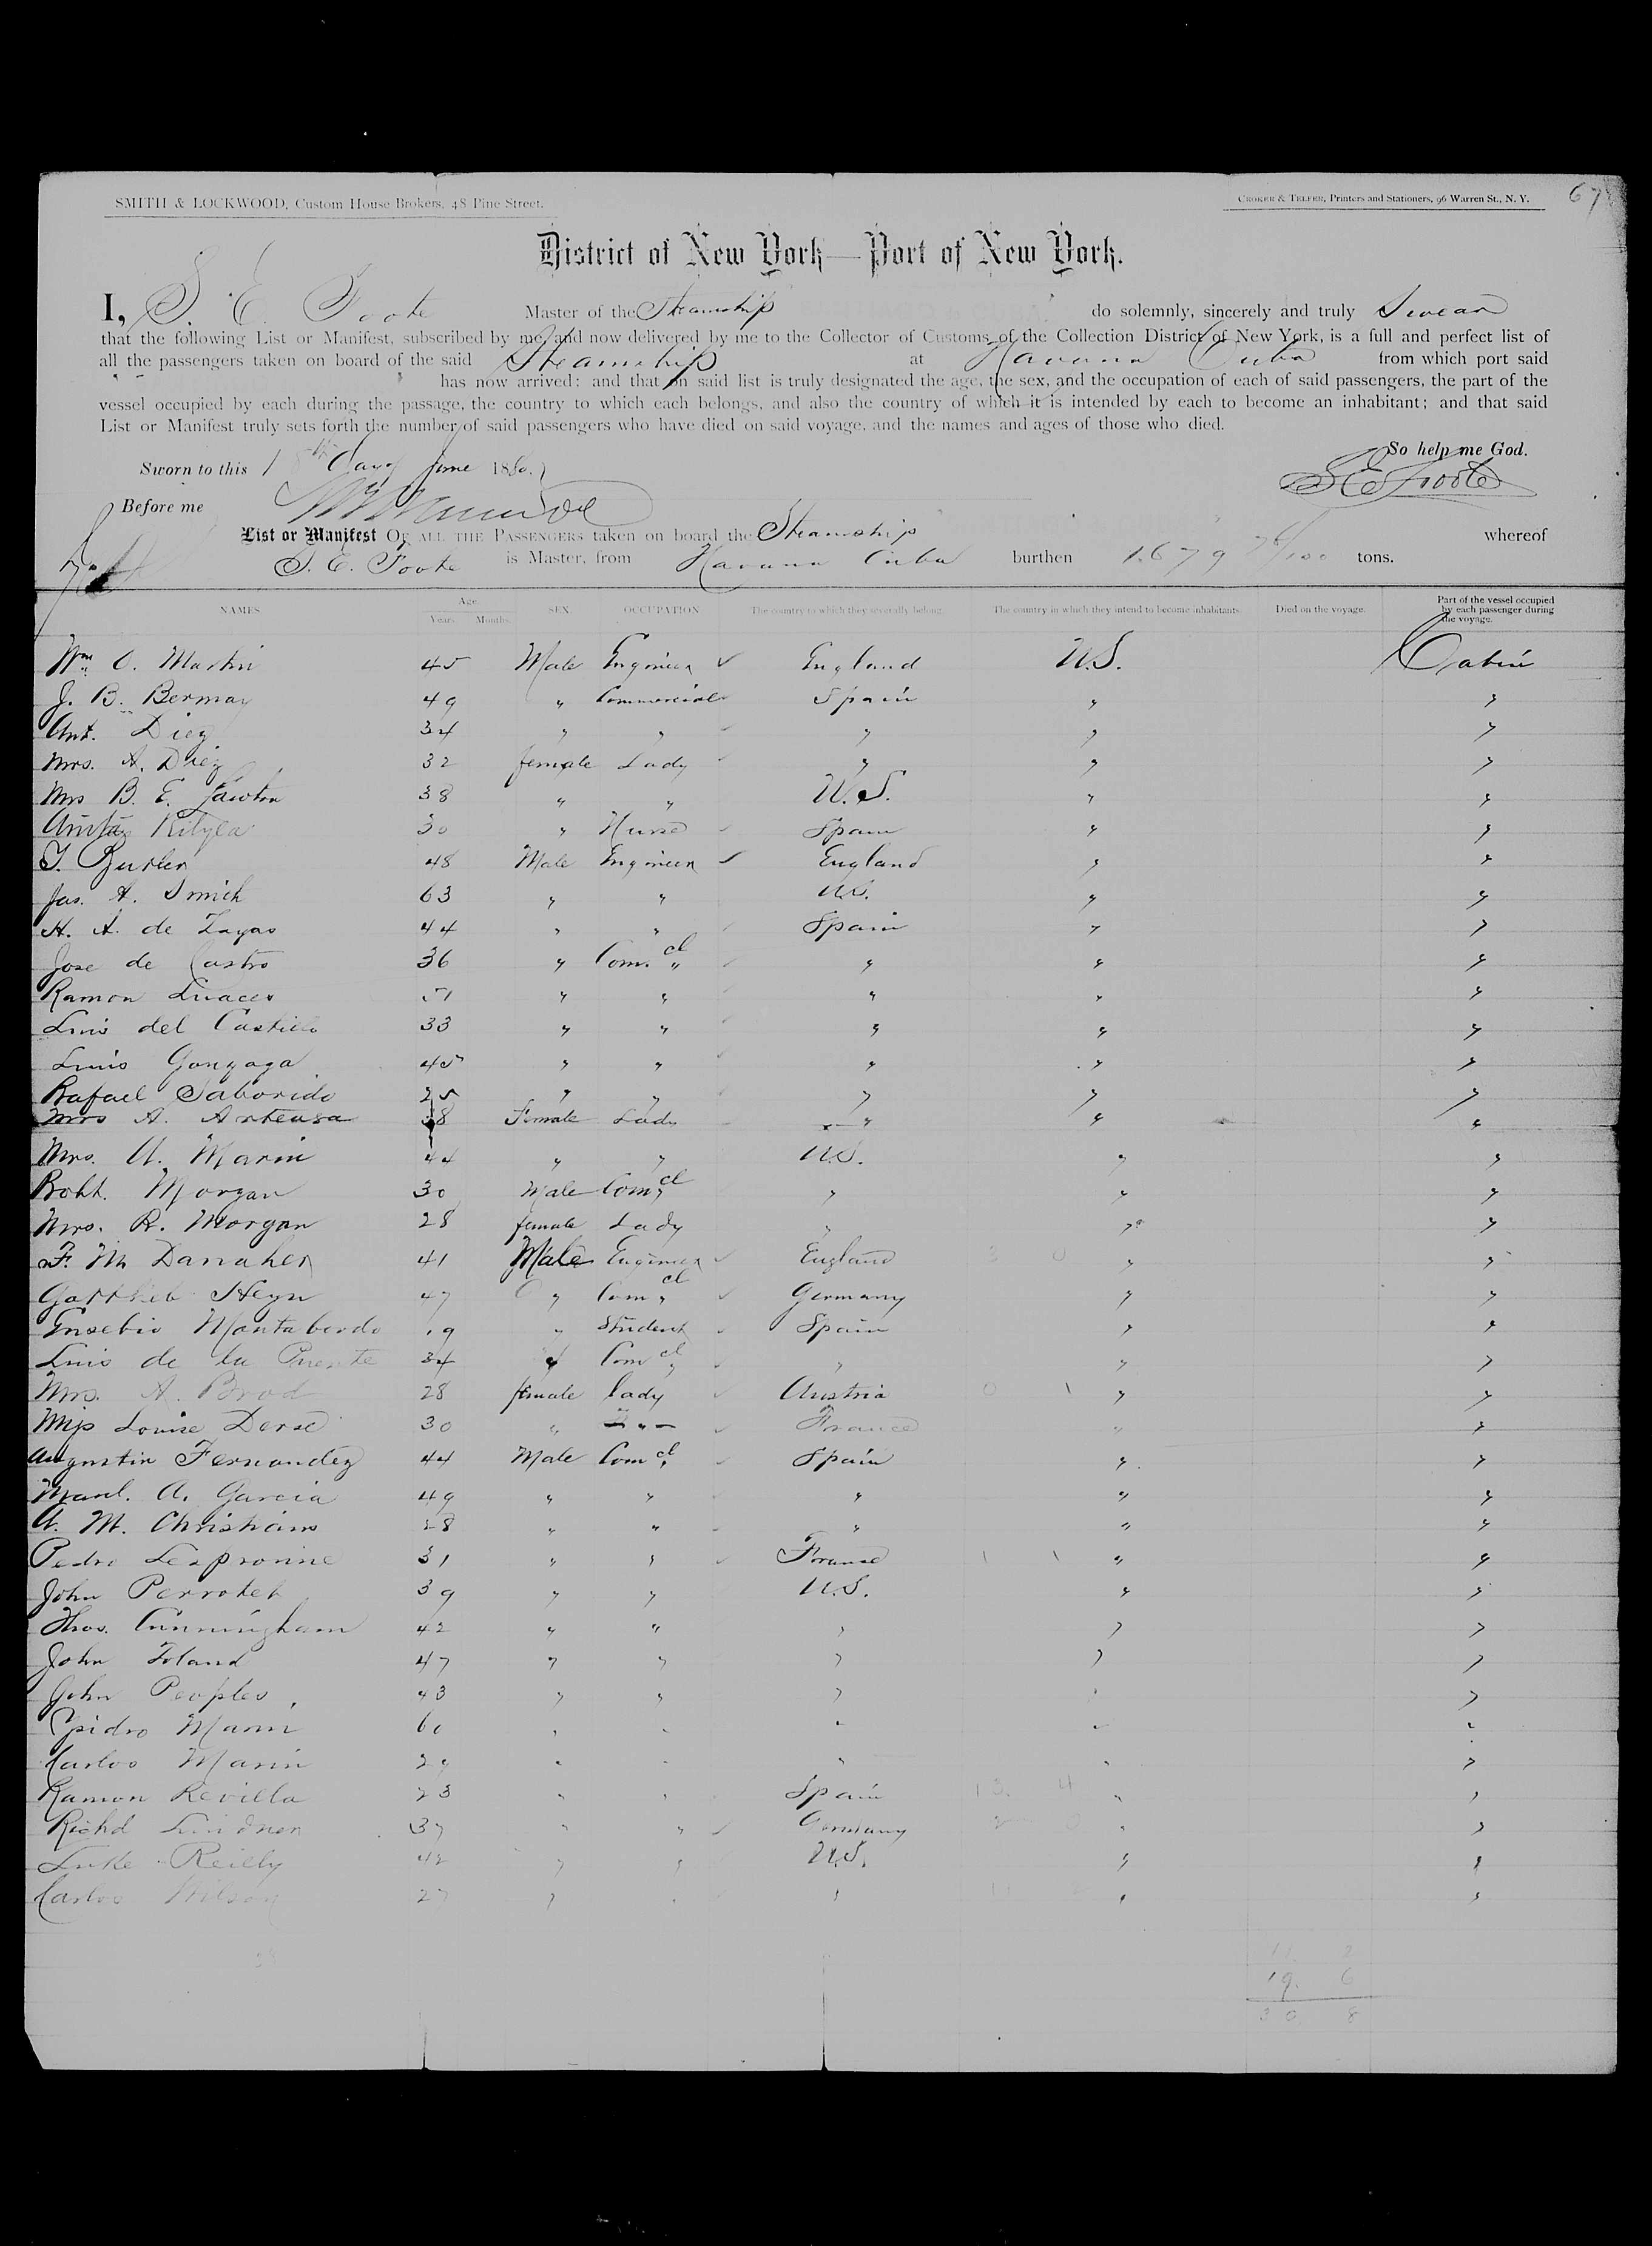 67
SMITH & LOCKWOOD, Custom House Brokers, 48 Pine Street.
CROKER & TELFER, Printers and Stationers, 96 Warren St., N. Y.
District of New York—Port of New York.
I, S. E. Foote Master of the Steamship do solemnly, sincerely and truly Swear
that the following List or Manifest, subscribed by me, and now delivered by me to the Collector of Customs of the Collection District of New York, is a full and perfect list of
all the passengers taken on board of the said Steamship at Havana Cuba from which port said
has now arrived; and that on said list is truly designated the age, the sex, and the occupation of each of said passengers, the part of the
vessel occupied by each during the passage, the country to which each belongs, and also the country of which it is intended by each to become an inhabitant; and that said
List or Manifest truly sets forth the number of said passengers who have died on said voyage, and the names and ages of those who died.
So help me God.
Sworn to this 18th Day of June 1880.
S E Foote
Before me
List or Manifest OF ALL THE PASSENGERS taken on board the Steamship whereof
S. E. Foote is Master, from Havana Cuba burthen 1679 tons.
NAMES Age. Years. Months. SEX. OCCUPATION The country to which they severally belong. The country in which they intend to become inhabitants. Died on the voyage. Part of the vessel occupied by each passenger during the voyage.
Wm. O. Martin 45 Male Engineer England U.S. Cabin
J. B. Bermay 49 " Commercial Spain " "
Ant. Diez 34 " " " " "
Mrs. A. Diez 32 female Lady " " "
Mrs B. E. Lawton 38 " " U.S. " "
30 " Nurse Spain " "
T. Butler 48 Male Engineer England " "
Jas. A. Smith 63 " " U.S. " "
H. A. de Zayas 44 " " Spain " "
Jose de Castro 36 " Com.cl " " "
Ramon Luaces 51 " " " " "
Luis del Castillo 33 " " " " "
Luis Gonzaga 45 " " " " "
Rafael Saborido 25 " " " " "
Mrs A. Arteaga 38 Female Lady " " "
Mrs. A. Marin 44 " " U.S. " "
Robt. Morgan 30 Male Comcl " " "
Mrs. R. Morgan 28 female Lady " " "
F. M Danaher 41 Male Engineer England " "
Gottlieb Heyn 47 " Comcl Germany " "
Eusebio Montabendo 19 " Student Spain " "
Luis de la Puente 34 " Comcl " " "
Mrs. A. Brod 28 female lady Austria " "
Miss Louise Derse 30 " " France " "
Augustin Fernandez 44 Male Comcl Spain " "
Manl. A. Garcia 49 " " " " "
A. M. Christians 28 " " " " "
Pedro 31 " " France " "
John Perrotet 39 " " U.S. " "
Thos. Cunningham 42 " " " " "
John Toland 47 " " " " "
John Peoples 43 " " " " "
Ysidro Marin 60 " " " " "
Carlos Marin 29 " " " " "
Ramon Revilla 23 " " Spain " "
Richd Lindner 37 " " Germany " "
Luke Reilly 42 " " U.S. " "
Carlos Wilson 27 " " " " "
11 2
19. 6
30 8